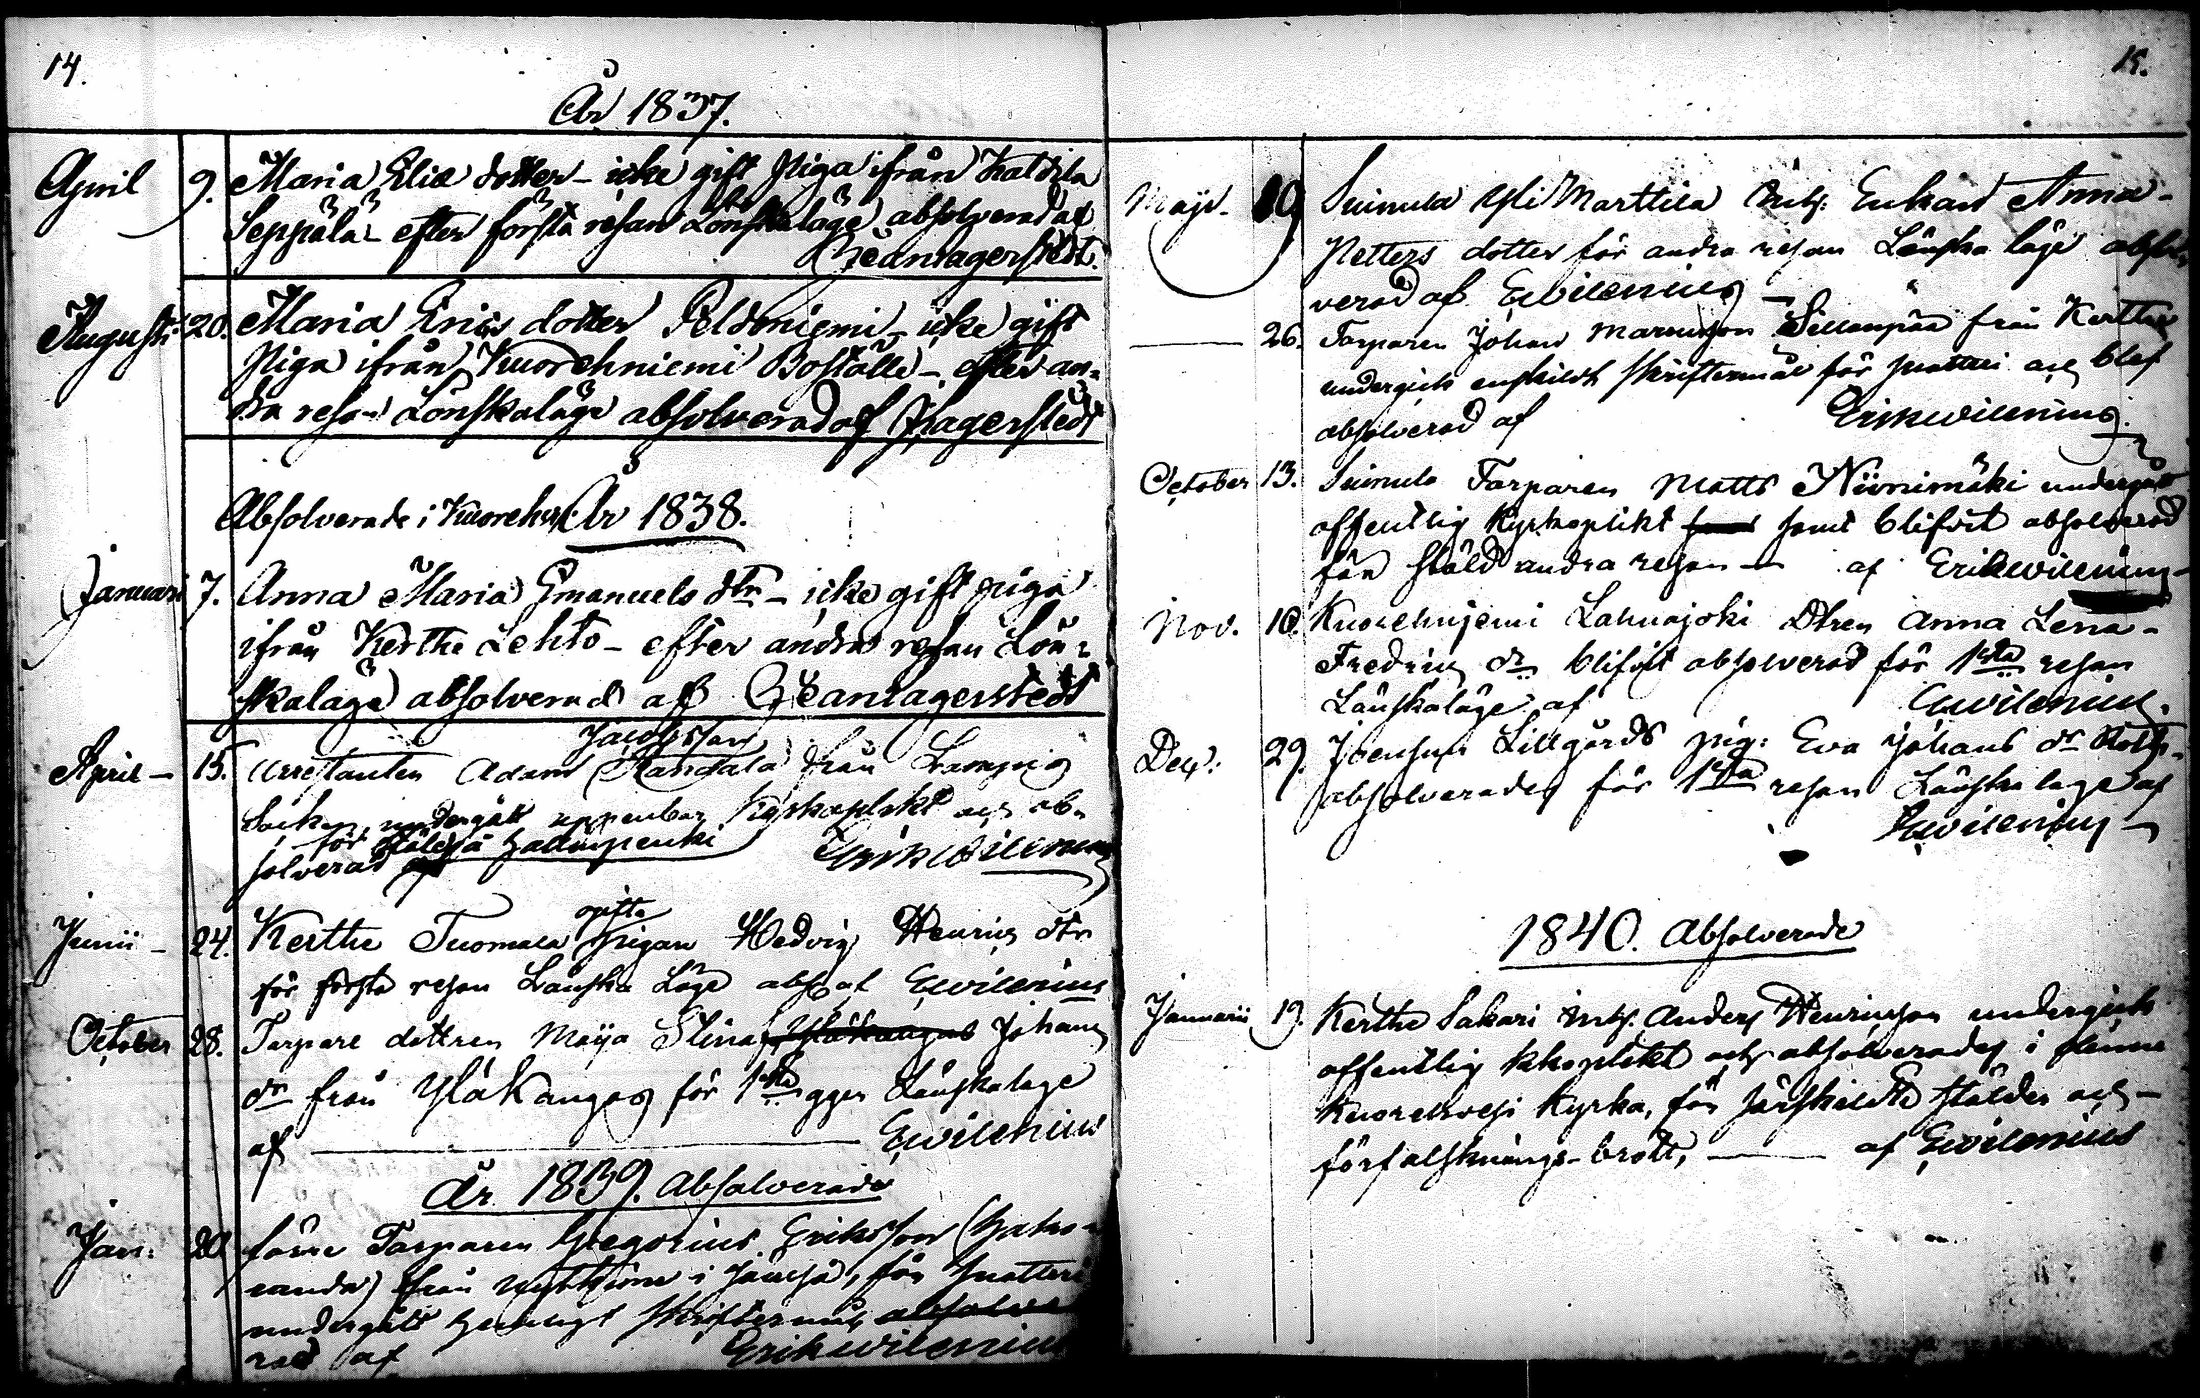 14.
År 1837.
April 9. Maria Eliæ dotter - icke gift Piga ifrån Kaldila
Seppälä - efter första resan Lönskaläge absolverad af
Augusti 20. Maria Erics dotter Peldoniemi - icke gift
Piga ifrån Kuorehniemi Boställe - efter an-
dra resan Lönskaläge absolverad af Hagerstedt
Absolverade i År 1838.
Januari 7. Anna Maria Emanuels dtr - icke gift piga
ifrån Kerthe Lehto - efter andra resan Lön-
skaläge absolverad af
Jacobsson
April - 15. Arrestanten Adam från
Socken, undergått uppenbar Kyrkoplikt och ab-
för
solverad Erik Wilenius
gifta
Junii - 24. Kerthe Tuomala Pigan Hedvig Henrics dtr
för första resan Länska Läge abs. af EWilenius
October 28. Torpare dottren Maja Stina Johans
dr från Yläkangas för 1sta ggen Länskaläge
af EWilenius
År 1839. Absolverade
Jan: 20 förre Torparen Gregorius Eriksson
från i Jämsä, för
undergått skriftermål, absolve
rad af Erik Wilenius
15.
Maji. 19 Suinula Yli Marttila Enkan Anna
Petters dotter för andra resan Länska läge absol-
verad af EWilenius
26. Torparen Johan Sillanpää från Kerthe
undergick enskildt skriftermål för och blef
absolverad af Erik Wilenius.
October 13. Suinula Torparen Matts Niinimäki undergått
offentlig Kyrkoplikt samt blifvit absolverad
för stöld andra resan - af Erik Wilenius
Nov. 10. Kuorehnjemi Lahnajoki Dtren Anna Lena
Fredrics dr blifvit absolverad för 1sta resan
Länskaläge af EWilenius.
Dec: 29. Lillgårds pig: Eva Johans dr
absolverades för 1sta resan Länska lage af
EWilenius
1840. Absolverade
Januarii 19. Kerthe Sakari Anders Henricsson undergick
offentlig kkoplikt och absolverades i
Kuorehvesi Kyrka, för särskildte stölder och
förfalsknings-brott, af EWilenius